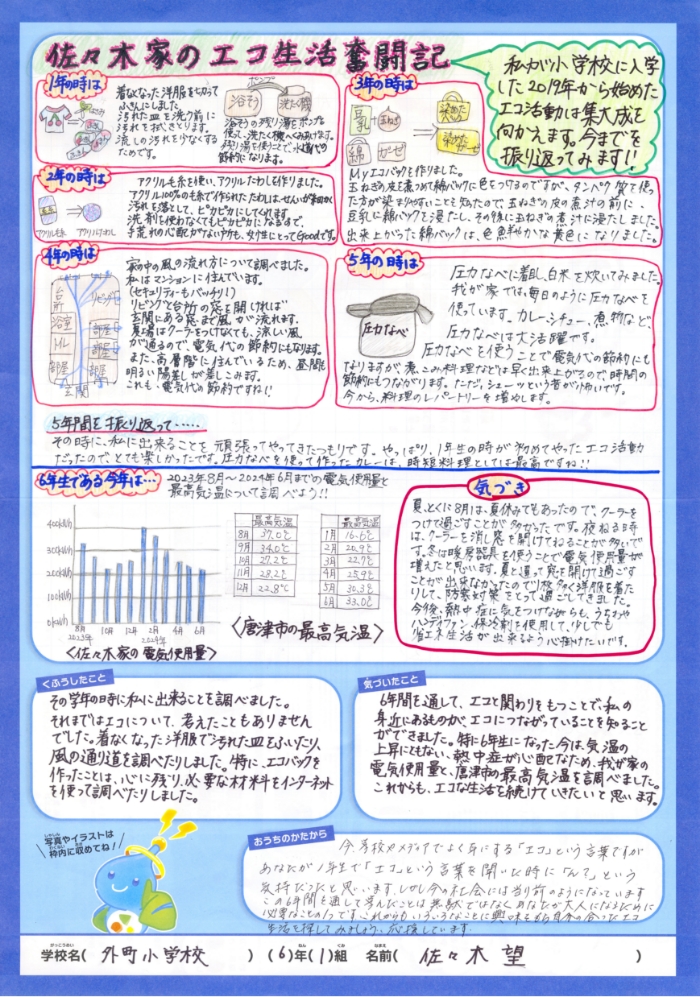 佐々木家のエコ生活奮闘記
私が小学校に入学
した2019年から始めた
エコ活動は集大成を
向かえます。今までを
振り返ってみます!!
1年の時は
着なくなった洋服を切って
ふきんにしました。
汚れた皿を洗う前に
汚れを拭きとります。
流しの汚れを少なくする
ためです。
ポンプ
浴そう
洗たく機
浴そうの残り湯をポンプを
使って、洗たく機へくみあげます。
残り湯を使うことで、水道代の
節約になります。
2年の時は
アクリル毛糸
アクリルたわし
アクリル毛糸を使い、アクリルたわしを作りました。
アクリル100%の毛糸で作られたたわしは、せんいが細かく
汚れを落として、ピカピカにしてくれます。
洗剤を使わなくてもピカピカになるので、
手荒れの心配がない所も、女性にとってGoodです。
3年の時は
豆乳
玉ねぎ
綿
ガーゼ
染めた
染めた
Myエコバックを作りました。
玉ねぎの皮を煮つめて綿バックに色をつけるのですが、タンパク質を使っ
た方が染まりやすいことを知ったので、玉ねぎの皮の煮汁の前に、
豆乳に綿バックを浸たし、その後に玉ねぎの煮汁に浸たしました。
出来上がった綿バックは、色鮮やかな黄色になりました。
4年の時は
台所
リビング
浴室
部屋
トイレ
部屋
部屋
部屋
玄関
家の中の風の流れ方について調べました。
私はマンションに住んでいます。
(セキュリティーもバッチリ!)
リビングや台所の窓を開ければ
玄関にある窓まで風が流れます。
夏場はクーラをつけなくても、涼しい風
が通るので、電気代の節約にもなります。
また、高層階に住んでいるため、昼間も
明るい陽差しが差しこみます。
これも、電気代の節約ですね!!
5年の時は
圧力なべ
圧力なべに着目し、白米を炊いてみました。
我が家では、毎日のように圧力なべを
使っています。カレー、シチュー、煮物など、
圧力なべは大活躍です。
圧力なべを使うことで電気代の節約にも
なりますが、煮こみ料理などは早く出来上がるので、時間の
節約にもつながります。ただ、シューッという音が怖いです。
今から、料理のレパートリーを増やします。
5年間を振り返って……
その時に、私に出来ることを頑張ってやってきたつもりです。やっぱり、1年生の時が初めてやったエコ活動
だったのでとても楽しかったです。圧力なべを使って作ったカレーは、時短料理としては最高ですね!!
6年生である今年は…
2023年8月〜2024年6月までの電気使用量と
最高気温について調べよう!!
400kWh
300kWh
200kWh
100kWh
0kWh
8月 10月 12月 2月 4月 6月
2023年 2024年
<佐々木家の電気使用量>
最高気温
8月 37.0℃
9月 34.0℃
10月 27.2℃
11月 28.2℃
12月 22.8℃
最高気温
1月 16.6℃
2月 20.9℃
3月 22.7℃
4月 25.9℃
5月 30.3℃
6月 33.0℃
<唐津市の最高気温>
気づき
夏、とくに8月は、夏休みでもあったので、クーラーを
つけて過ごすことが多かったです。夜ねる時
は、クーラーを消し窓を開けてねることが多いで
す。冬は暖房器具を使うことで電気使用量が
増えたと思います。夏と違って窓を開けて過ごす
ことが出来なかったので、厚着を着た
りして、防寒対策をとって過ごしてきました。
今後、熱中症に気をつけながらも、うちわや
ハンディファン、保冷剤を使用して、少しでも
省エネ生活が出来るよう心掛けたいです。
くふうしたこと
その学年の時に私に出来ることを調べました。
それまではエコについて、考えたこともありません
でした。着なくなった洋服で汚れた皿をふいたり、
風の通り道を調べたりしました。特に、エコバックを
作ったことは、心に残り、必要な材料をインターネット
を使って調べたりしました。
気づいたこと
6年間を通して、エコと関わりをもつことで、私の
身近にあるものが、エコにつながっていることを知ること
ができました。特に6年生になった今は、気温の
上昇にともない、熱中症が心配なため、我が家の
電気使用量と、唐津市の最高気温を調べました。
これからも、エコな生活を続けていきたいと思います。
写真やイラストは
枠内に収めてね!
おうちのかたから
今、学校やメディアでよく耳にする「エコ」という言葉ですが
あなたが1年生で「エコ」という言葉を聞いた時に「ん?」という
気持だったと思います。しかし今の社会には当り前のようになっています
この6年間を通して学んだことは無駄ではなく、あなたが大人になるために
必要なことの1つです。これからもいろいろなことに興味を
生活を探してみましょう。応援しています
学校名( 外町小学校 ) (6)年(1)組 名前( 佐々木望 )